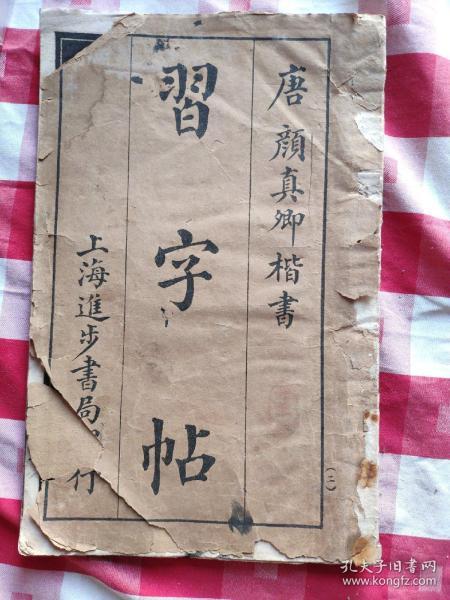 唐顔真卿楷書
習字帖
上海進步書局
行
(二)
孔夫子旧书网
www.kongfz.com